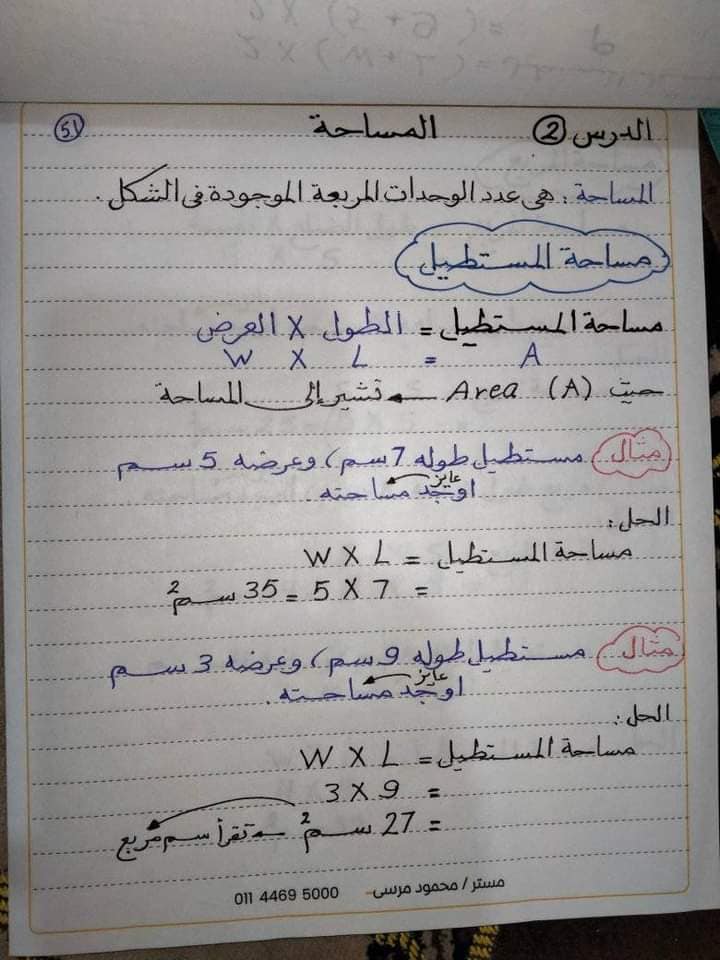 الدرس ② المساحة 51
المساحة : هى عدد الوحدات المربعة الموجودة فى الشكل .
مساحة المستطيل
مساحة المستطيل = الطول X العرض
A = L X W
حيث Area (A) ← تشير إلى المساحة
مثال مستطيل طوله 7 سم ، وعرضه 5 سم
عايز
اوجد مساحته
الحل :
مساحة المستطيل = W X L
= 7 X 5 = 35 سم²
مثال مستطيل طوله 9 سم ، وعرضه 3 سم
عايز
اوجد مساحته .
الحل :
مساحة المستطيل = W X L
= 9 X 3
= 27 سم² ← تقرأ سم مربع
مستر / محمود مرسى - 011 4469 5000